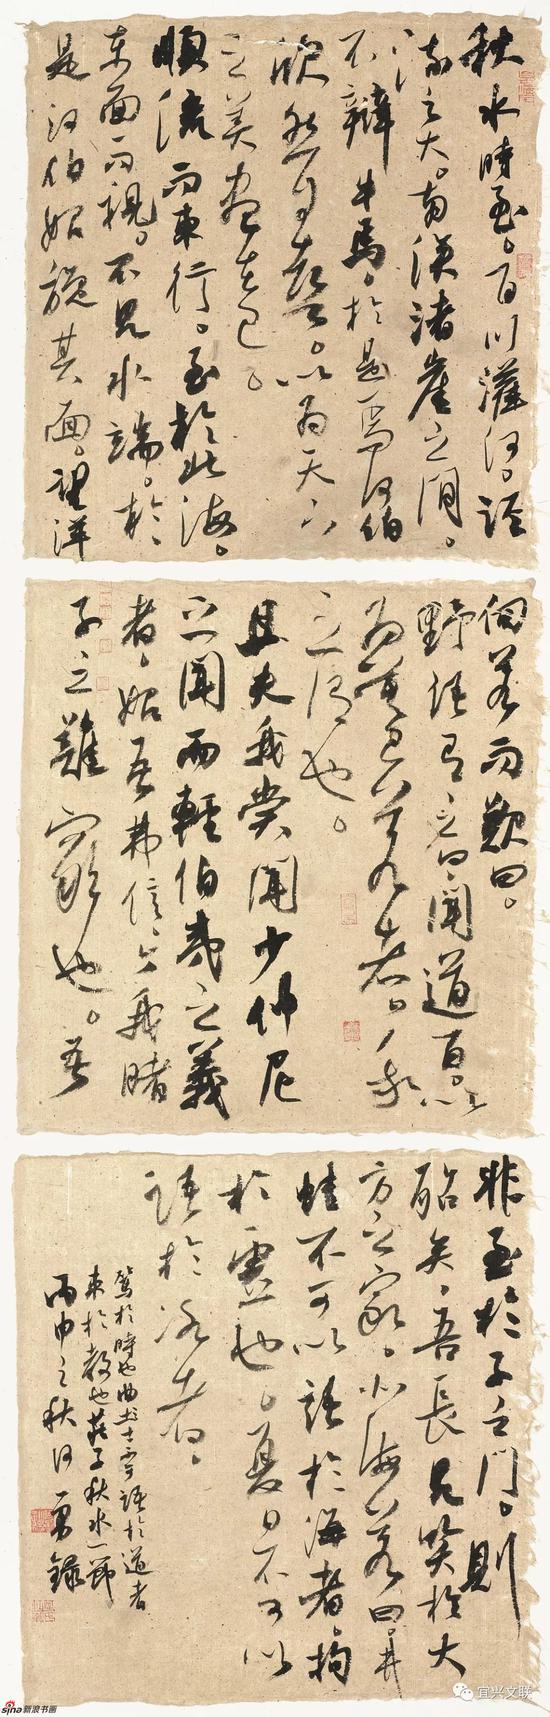 秋水時至。百川灌河。涇
流之大。兩涘渚崖之間。
不辯牛馬。於是焉河伯
欣然自喜。以為天下
之美盡在己。
順流而東行。至於北海。
東面而視。不見水端。於
是河伯始旋其面。望洋
向若而歎曰。
野語有之曰。聞道百以
為莫己若者。我
之謂也。
且夫我嘗聞少仲尼
之聞而輕伯夷之義
者、始吾弗信、今我睹
子之難窮也。吾
非至於子之門。則
殆矣、吾長見笑於大
方之家。北海若曰。井
蛙不可以語於海者、拘
於虛也。夏日不可以
語於冰者、
篤於時也曲士不可語於道者
束於教也莊子秋水一節
丙申之秋 勇錄
宜兴文联
sina新浪书画